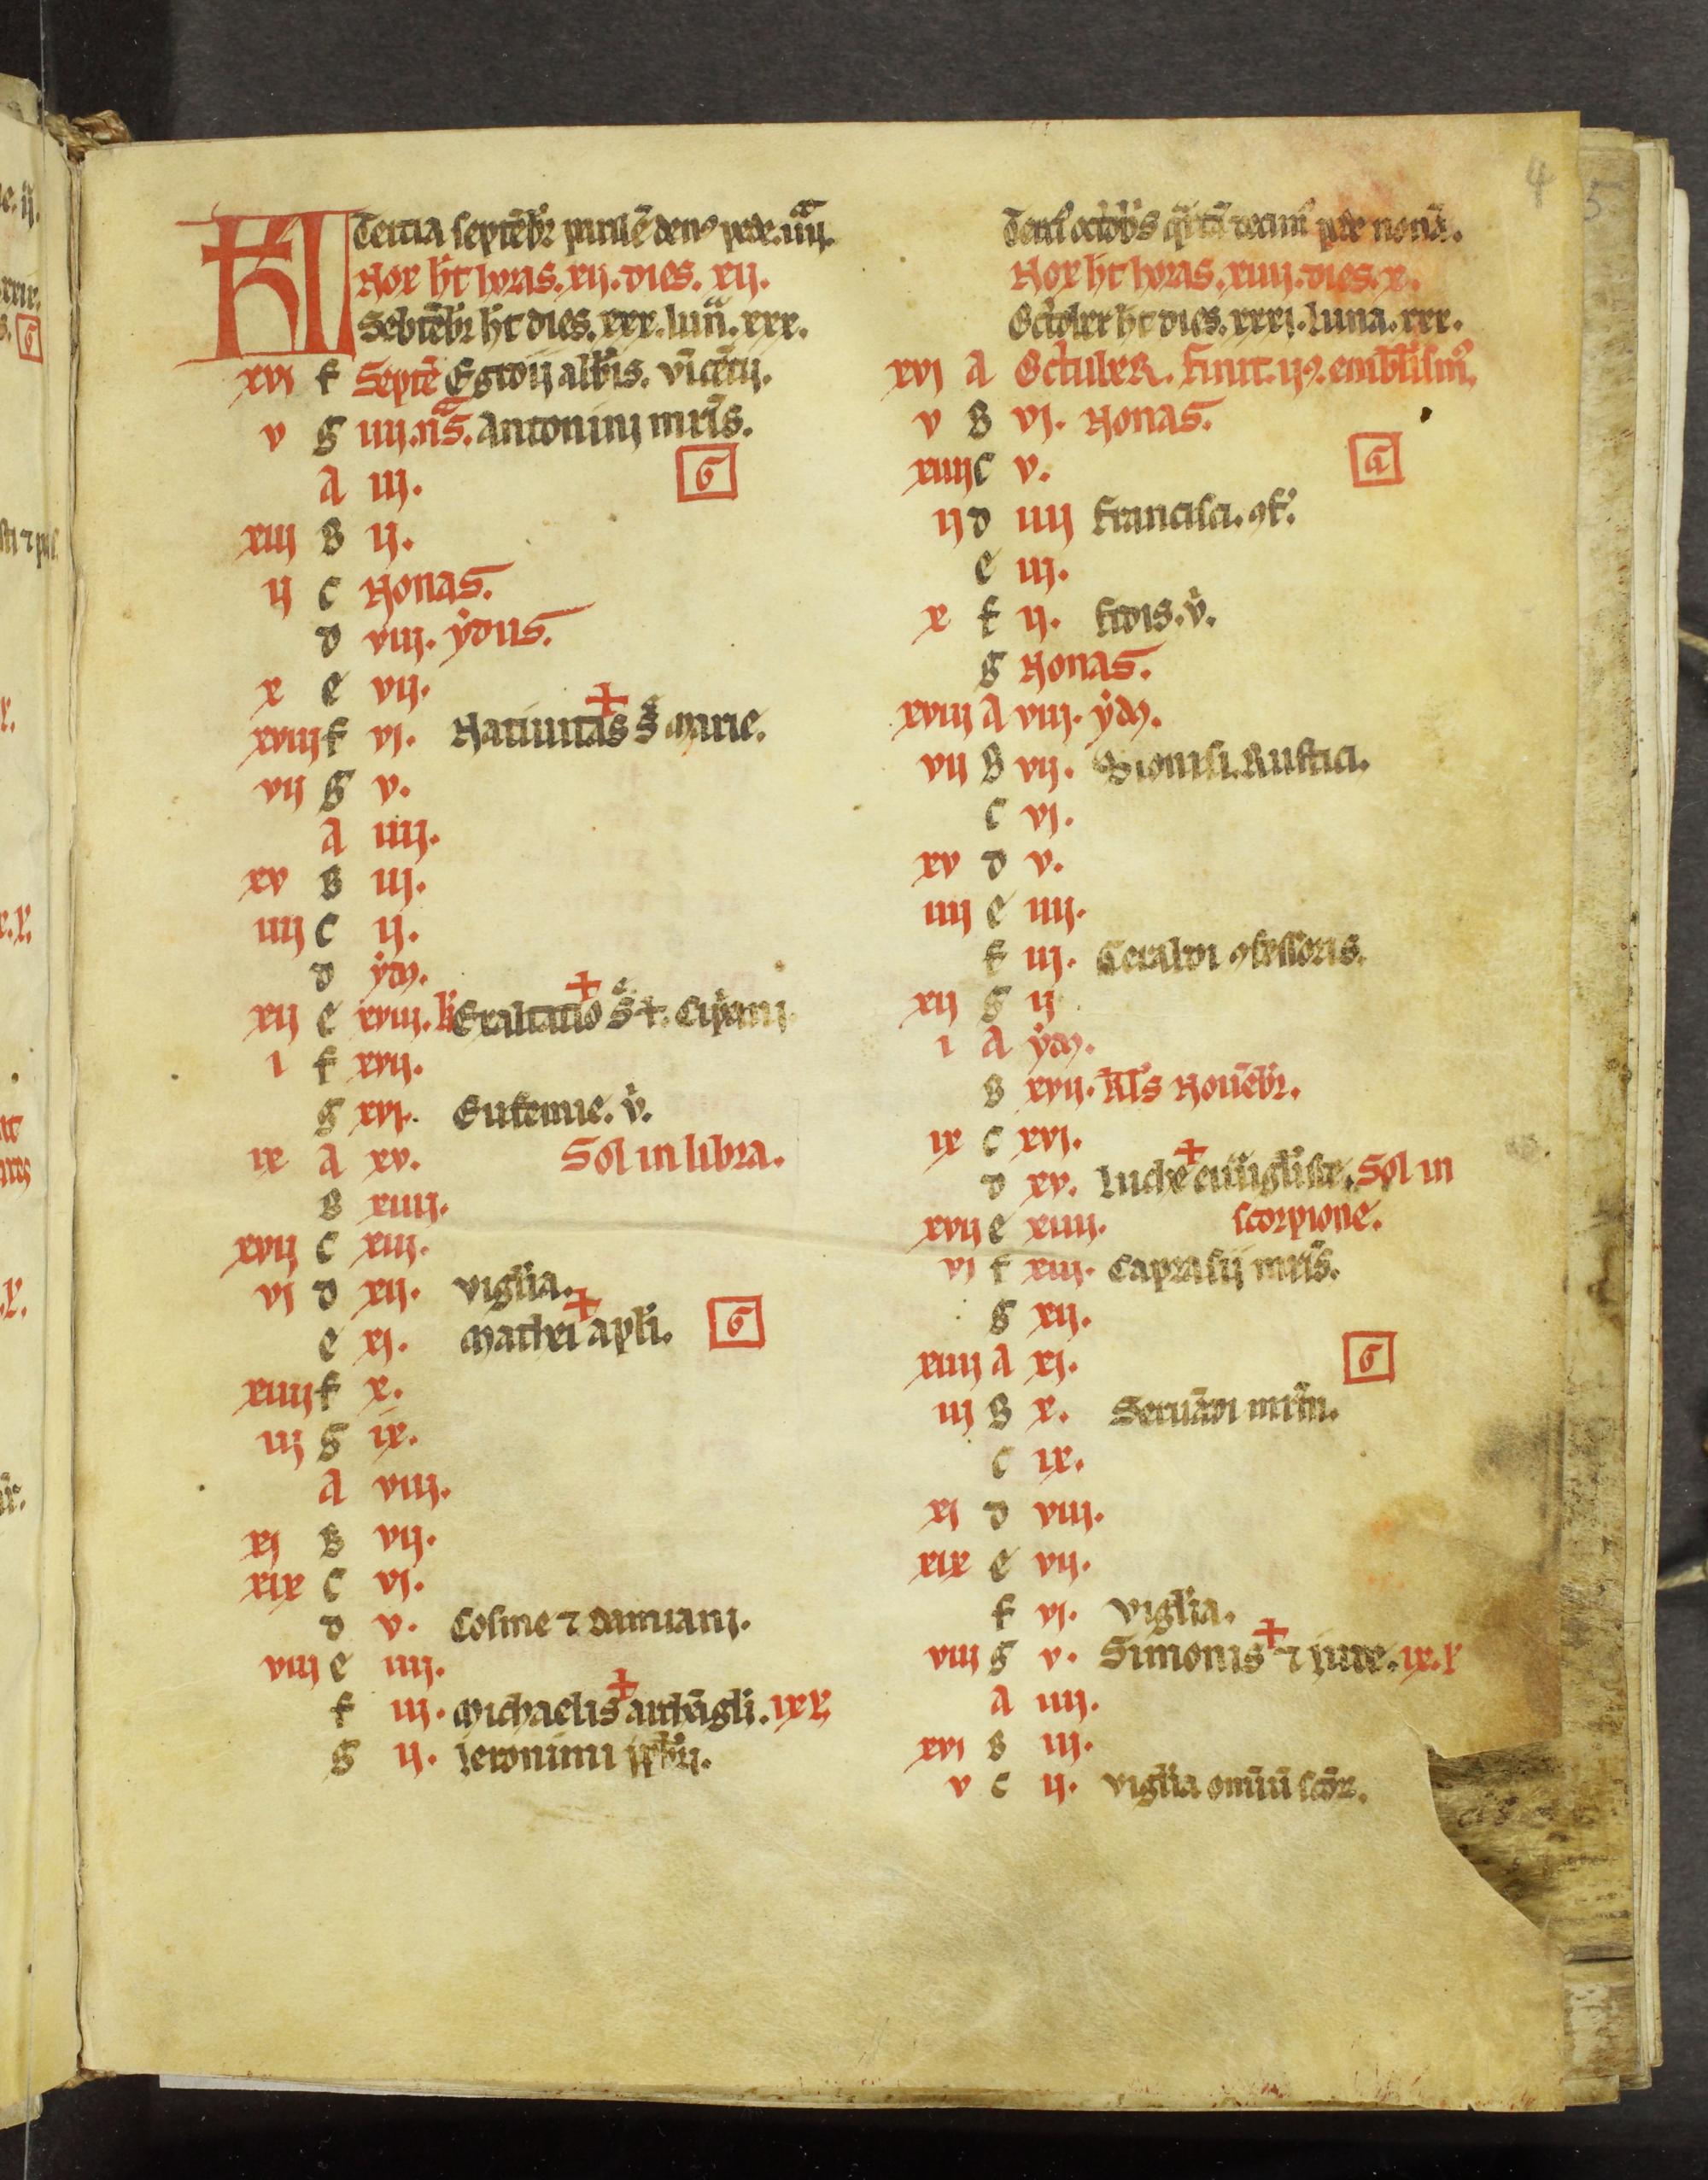 4
KL Tertia septēbr̄ pcutit̄ den⁹ pede. iiij.
Nox h̄t horas. xij. dies. xij.
Sebtēbr̄ h̄t dies. xxx. luna. xxx.
xvj f Septē Egidij abb̄is. vīcētij.
v g iiij. n̄s. Antonini mr̄is.
A iij. G
xiij B ij.
ij c Nonas.
d viij. ydus.
x e vij.
xviij f vj. Natiuitas s̄ē marie.
vij g v.
A iiij.
xv B iij.
iiij c ij.
d yd9.
xij e xviij. kl̄ Exaltatio s̄ē ✝. Cip̄ani
i f xvij.
g xvj. Eufemie. v̄.
ix A xv. Sol in libra.
B xiiij.
xvij c xiij.
vj d xij. vigl̄ia.
e xj. mathei apl̄i. G
xiiij f x.
iij g ix.
A viij.
xj B vij.
xix c vj.
d v. Cosme ⁊ damiani.
viij e iiij.
f iij. michaelis archāgli. ix. ł.
g ij. Ieronimi pr̄bri.
octobris decim⁹ nonā.
Nox h̄t horas. xiiij. dies. x.
October h̄t dies. xxxj. luna. xxx.
xvj A OctubeR. finit. ij9. embl̄ism⁹.
v B vj. Nonas.
xiiij c v. G
ij d iiij Francisci. 9f̄.
e iij.
x f ij. fidis. v̄.
g Nonas.
xviij A viij. yd9.
vij B vij. Dionisi. Rustici.
c vj.
xv d v.
iiij e iiij.
f iij. Geraldi 9fessoris.
xij g ij
i A yd9.
B xvij. kl̄s Nouēbr̄.
ix c xvj.
d xv. Luche euāngl̄iste. Sol in
scorpione.
xvij e xiiij.
vj f xiij. Caprasij mr̄is.
g xij.
xiiij A xj. G
iij B x. Seruādi mr̄m.
c ix.
xj d viij.
xix e vij.
f vj. vigl̄ia.
viij g v. Simonis ⁊ iude. ix. ł
A iiij.
xvj B iij.
v c ij. vigl̄ia omīu scōr.